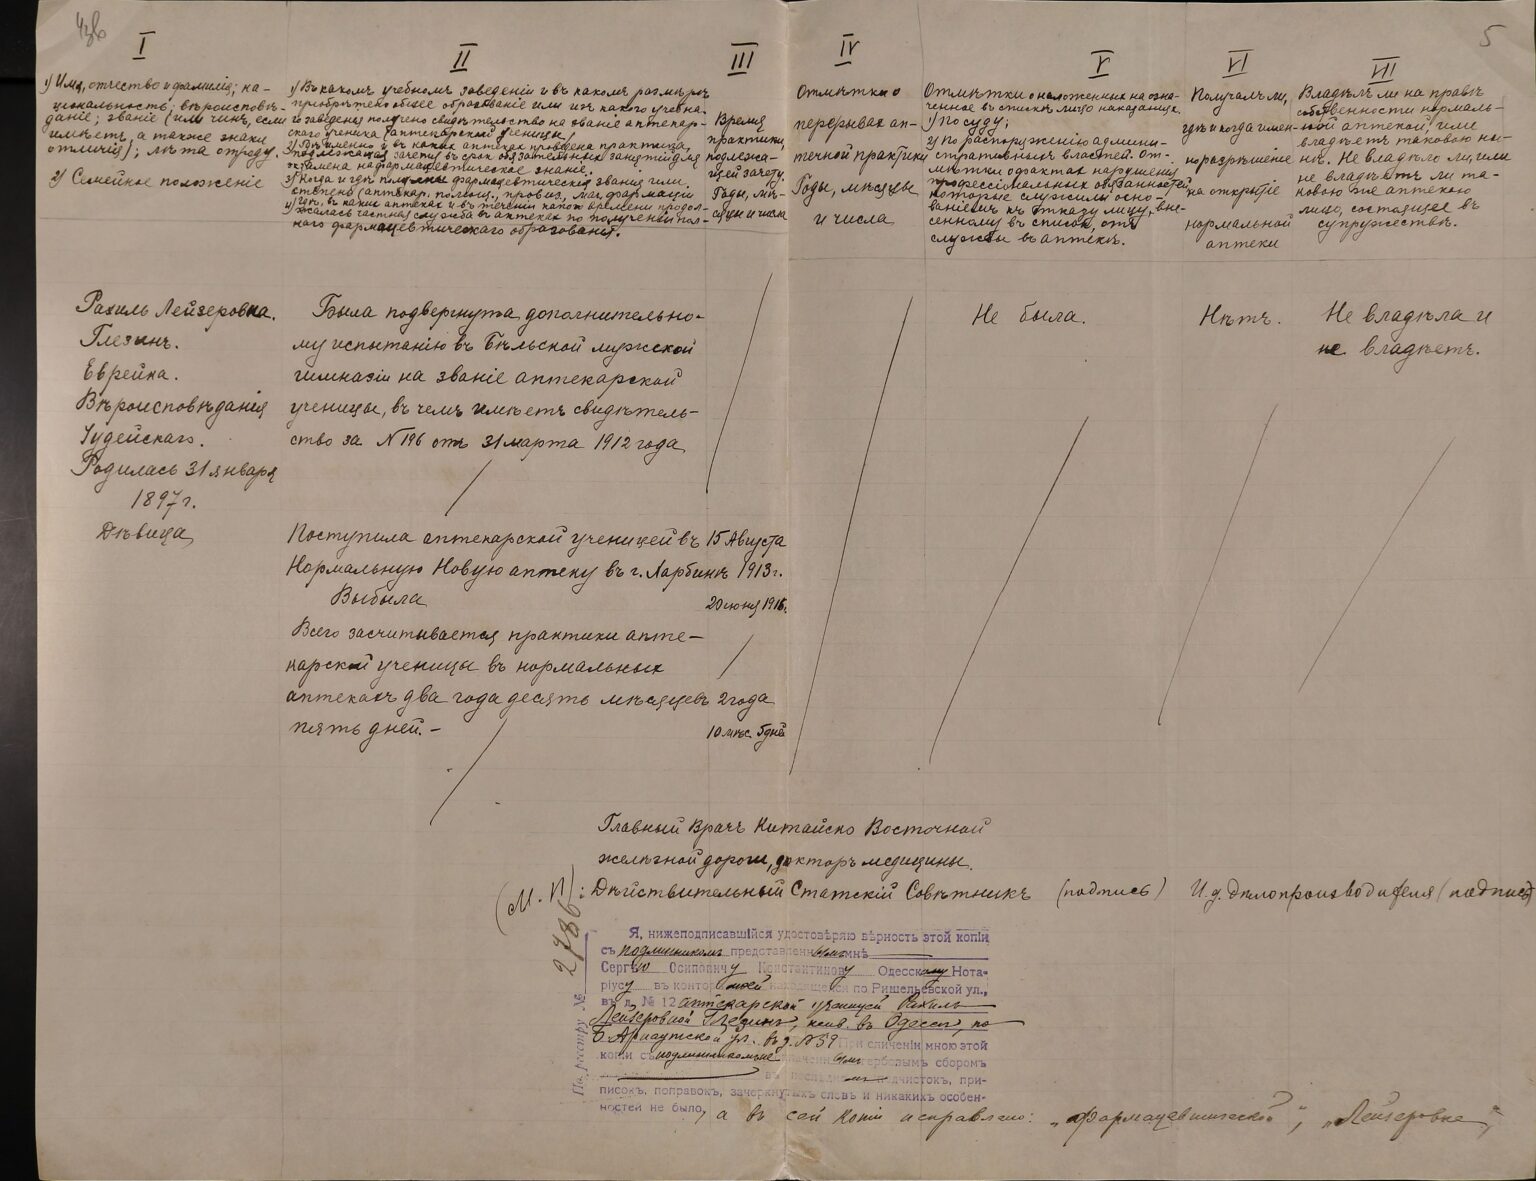 436
5
I
1) Имя, отчество и фамилія; на-
ціональность; вѣроисповѣ-
даніе; званіе (или чинъ, если
имѣетъ, а также знаки
отличія); лѣта отроду.
2) Семейное положеніе
II
1) Въ какомъ учебномъ заведеніи и въ какомъ размѣрѣ
пріобрѣтено общее образованіе или изъ какого учебна-
го заведенія получено свидѣтельство на званіе аптекар-
скаго ученика (аптекарской ученицы)
2) Гдѣ именно и въ какихъ аптекахъ проведена практика,
подлежащая зачету въ срокъ обязательныхъ занятій для
экзамена на фармацевтическое званіе.
3) Когда и гдѣ получены фармацевтическія званія или
степень (аптекар. помощ., провиз., маг. фармаціи
4) Гдѣ, въ какихъ аптекахъ и въ теченіи какого времени продол-
жалась частная служба въ аптекахъ по полученіи пол-
наго фармацевтическаго образованія.
III
Время
практики,
подлежа-
щей зачету.
Годы, мѣ-
сяцы и числа
IV
Отмѣтки о
перерывахъ ап-
течной практики
Годы, мѣсяцы
и числа
V
Отмѣтки о наложенныхъ на озна-
ченное въ спискѣ лицо наказаніяхъ
1) По суду;
2) По распоряженію админи-
стративныхъ властей. От-
мѣтки о фактахъ нарушенія
профессіональныхъ обязанностей,
которые служили осно-
ваніемъ къ отказу лицу, вне-
сенному въ списокъ, отъ
службы въ аптекѣ.
VI
Получалъ ли,
гдѣ и когда имен-
но разрѣшеніе
на открытіе
нормальной
аптеки
VII
Владѣлъ ли на правѣ
собственности нормаль-
ной аптекой, или
владѣетъ таковою ны-
нѣ. Не владѣло ли, или
не владѣетъ ли та-
ковою же аптекою
лицо, состоящее въ
супружествѣ.
Рахиль Лейзеровна.
Глезинъ.
Еврейка.
Вѣроисповѣданія
Іудейскаго.
Родилась 31 января
1897 г.
Дѣвица
Была подвергнута дополнительно-
му испытанію въ Бѣльской мужской
гимназіи на званіе аптекарской
ученицы, въ чемъ имѣетъ свидѣтель-
ство за № 196 отъ 31 марта 1912 года
Не была.
Нѣтъ.
Не владѣла и
не владѣетъ.
Поступила аптекарской ученицей въ 15 Августа
Нормальную Новую аптеку въ г. Харбинѣ 1913 г.
Выбыла 20 іюня 1916.
Всего засчитывается практики апте-
карской ученицы въ нормальныхъ
аптекахъ два года десять мѣсяцевъ 2 года
пять дней. — 10 мѣс. 5 дней
Главный Врачъ Китайско Восточной
желѣзной дороги, докторъ медицины
(М. П.): Дѣйствительный Статскій Совѣтникъ (подпись) И. д. Дѣлопроизводителя (подпись)
По реестру № 2786
Я, нижеподписавшійся удостовѣряю вѣрность этой копіи
съ подлинникомъ представленнымъ мнѣ
Сергѣю Осиповичу Константинову Одесскому Нота-
ріусу въ конторѣ моей находящейся по Ришельевской ул.,
въ д. № 12 аптекарской ученицей Рахиль
Лейзеровной Глезинъ, жив. въ Одессѣ, по
Б. Арнаутской ул. въ д. № 59. При сличеніи мною этой
копіи съ подлинникомъ гербовымъ сборомъ
въ подчистокъ, при-
писокъ, поправокъ, зачеркнутыхъ словъ и никакихъ особен-
ностей не было, а въ сей копіи исправлено: „фармацевтической", „Лейзеровна",